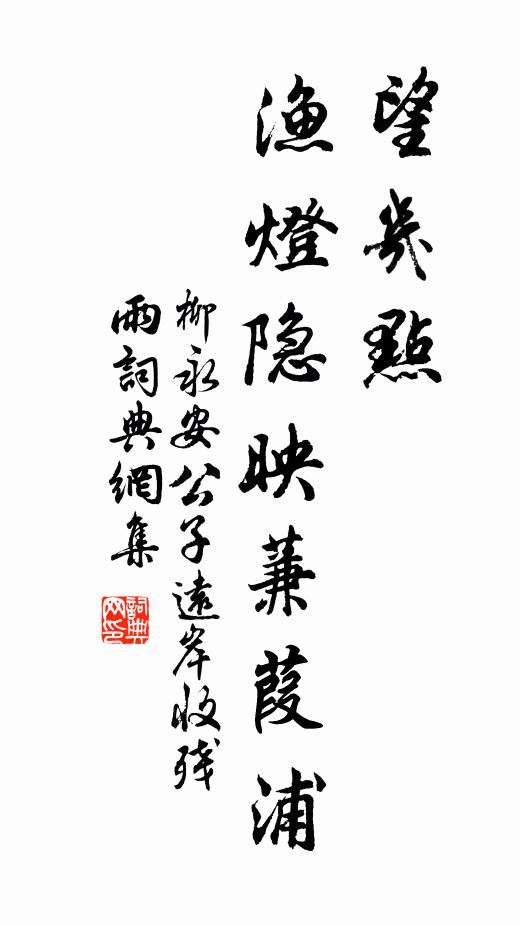 望几點
漁燈隐映蒹葭浦
柳永安公子遠岸收残
雨詞典網集
詞典
网印